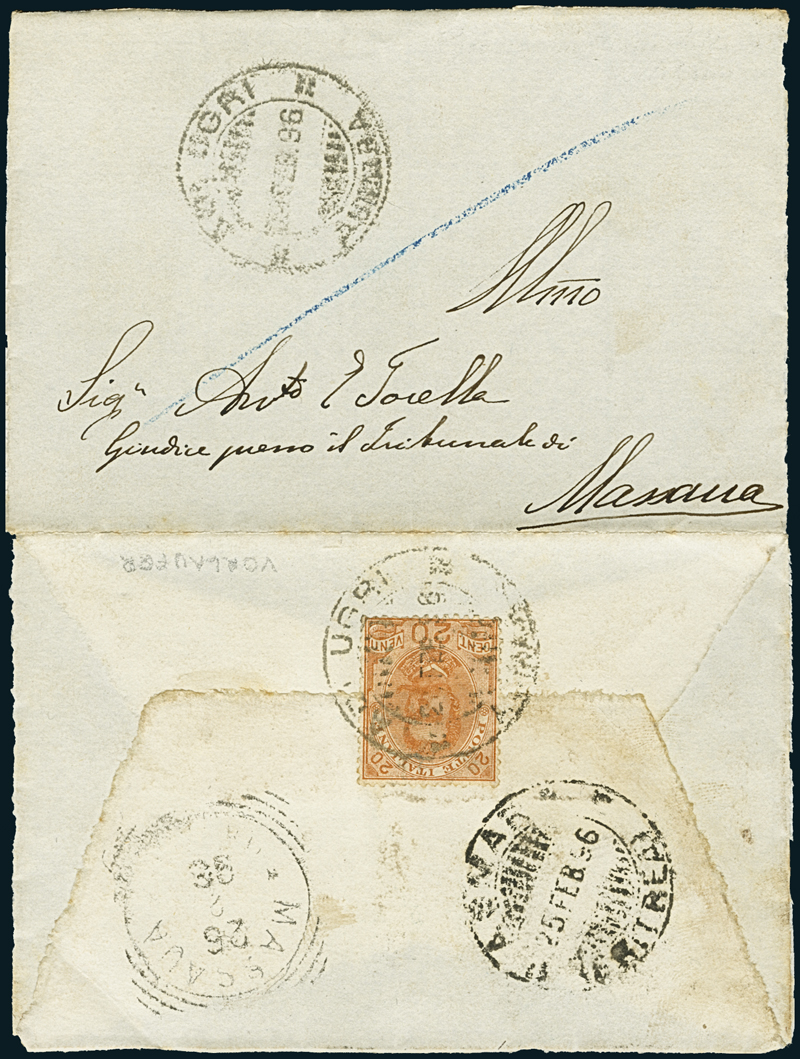 UGRI
FEB. 96
Illmo
Sigr Avvto E Torella
Giudice presso il Tribunale di
Massaua
VORLÄUFER
UGRI
20
CENT
VENTI
POSTE ITALIANE
20
20
MASSAUA
26
2
96
ASMARA
25 FEB. 96
ERITREA